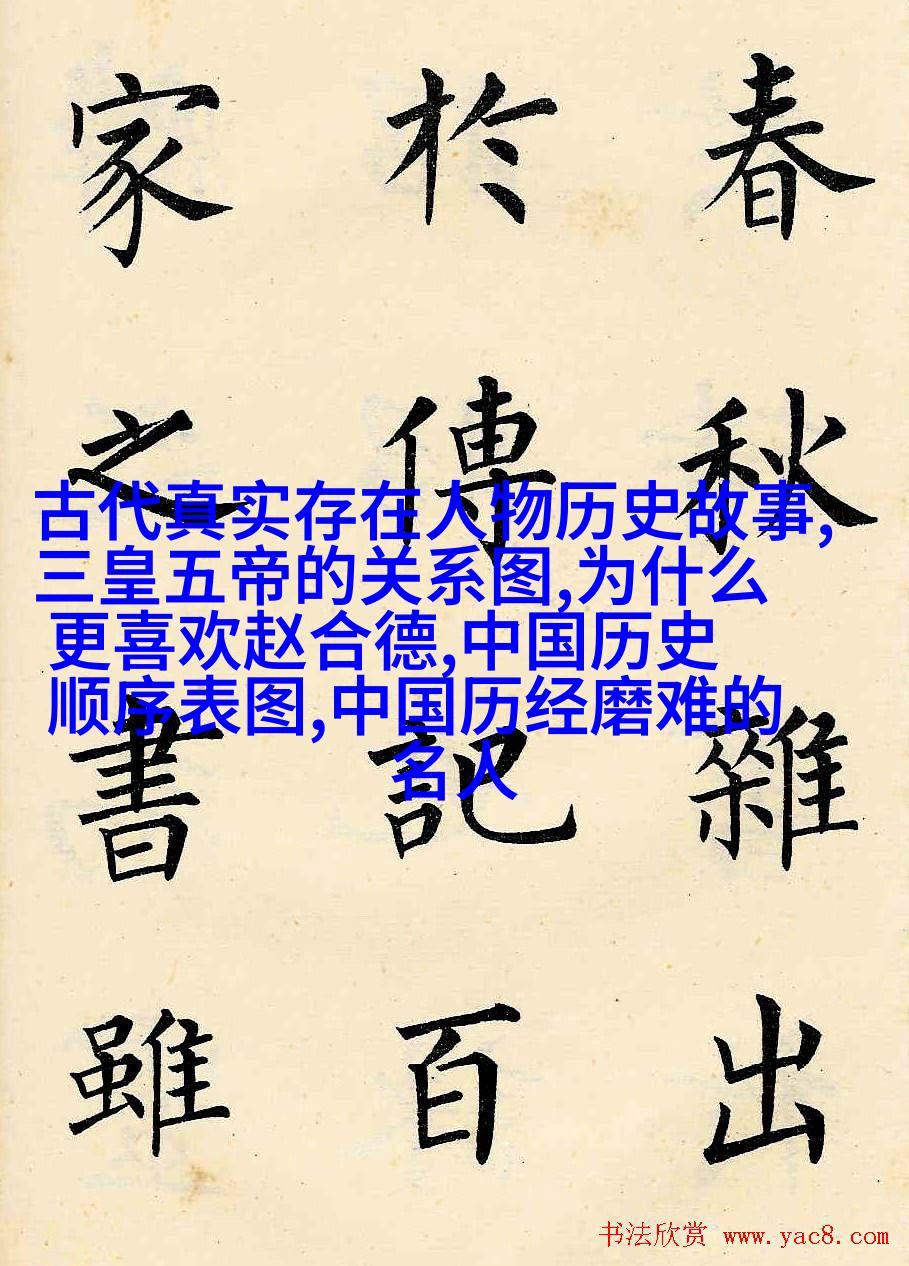 春秋雜出
於傳記百
家之書雖
古代真实存在人物历史故事,
三皇五帝的关系图,为什么
更喜欢赵合德,中国历史
顺序表图,中国历经磨难的
名人
书法欣赏 www.yac8.com